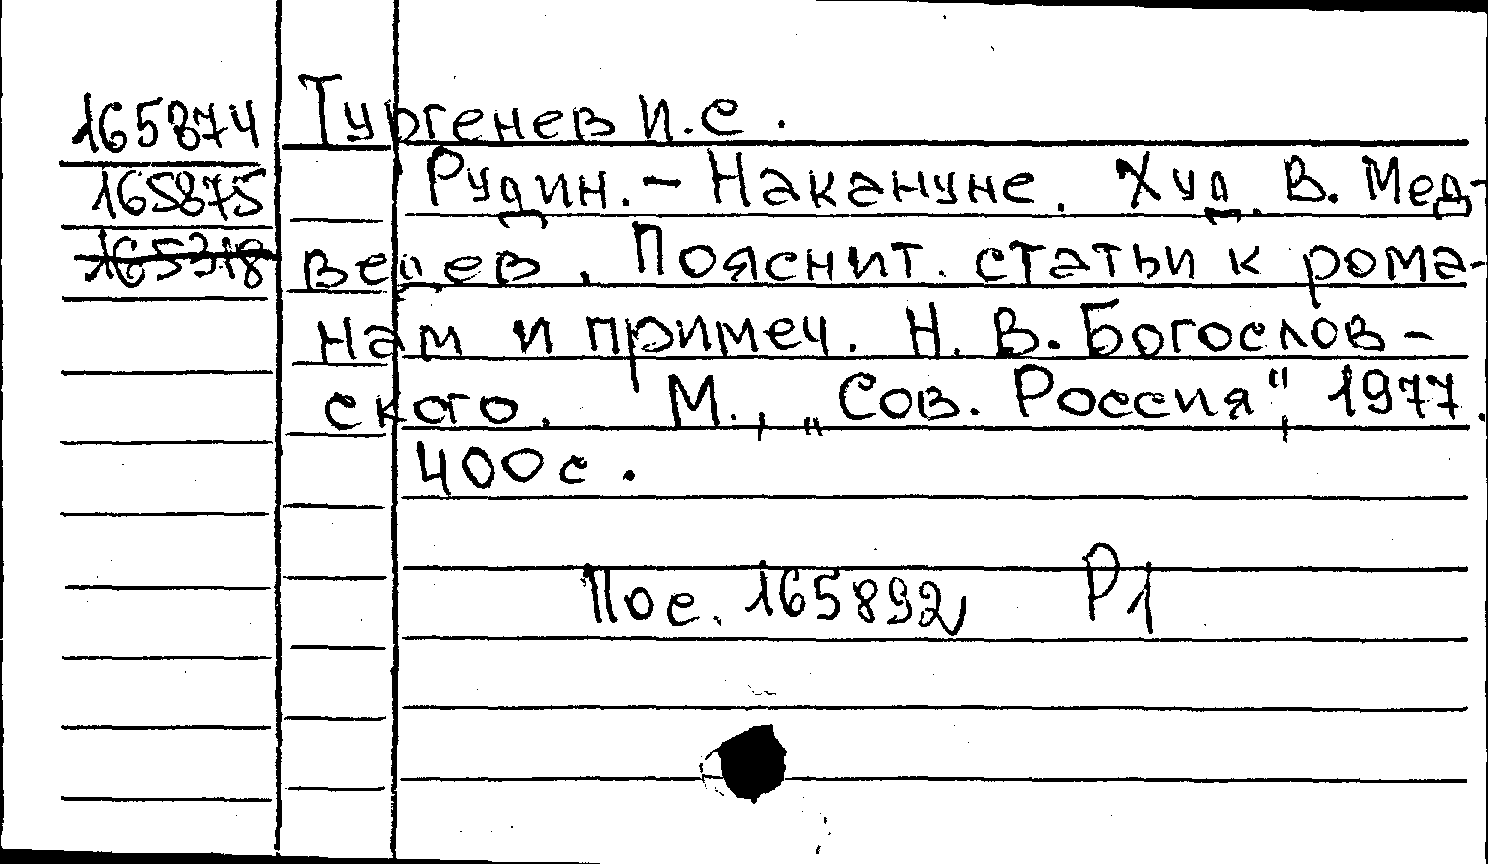 165874 Тургенев И.С.
165875 Рудин. - Накануне. Худ. В. Мед-
165318 ведев. Пояснит. статьи к рома-
нам и примеч. Н. В. Богослов-
ского. М., „Сов. Россия", 1977.
400с.
Пос. 165892 Р1